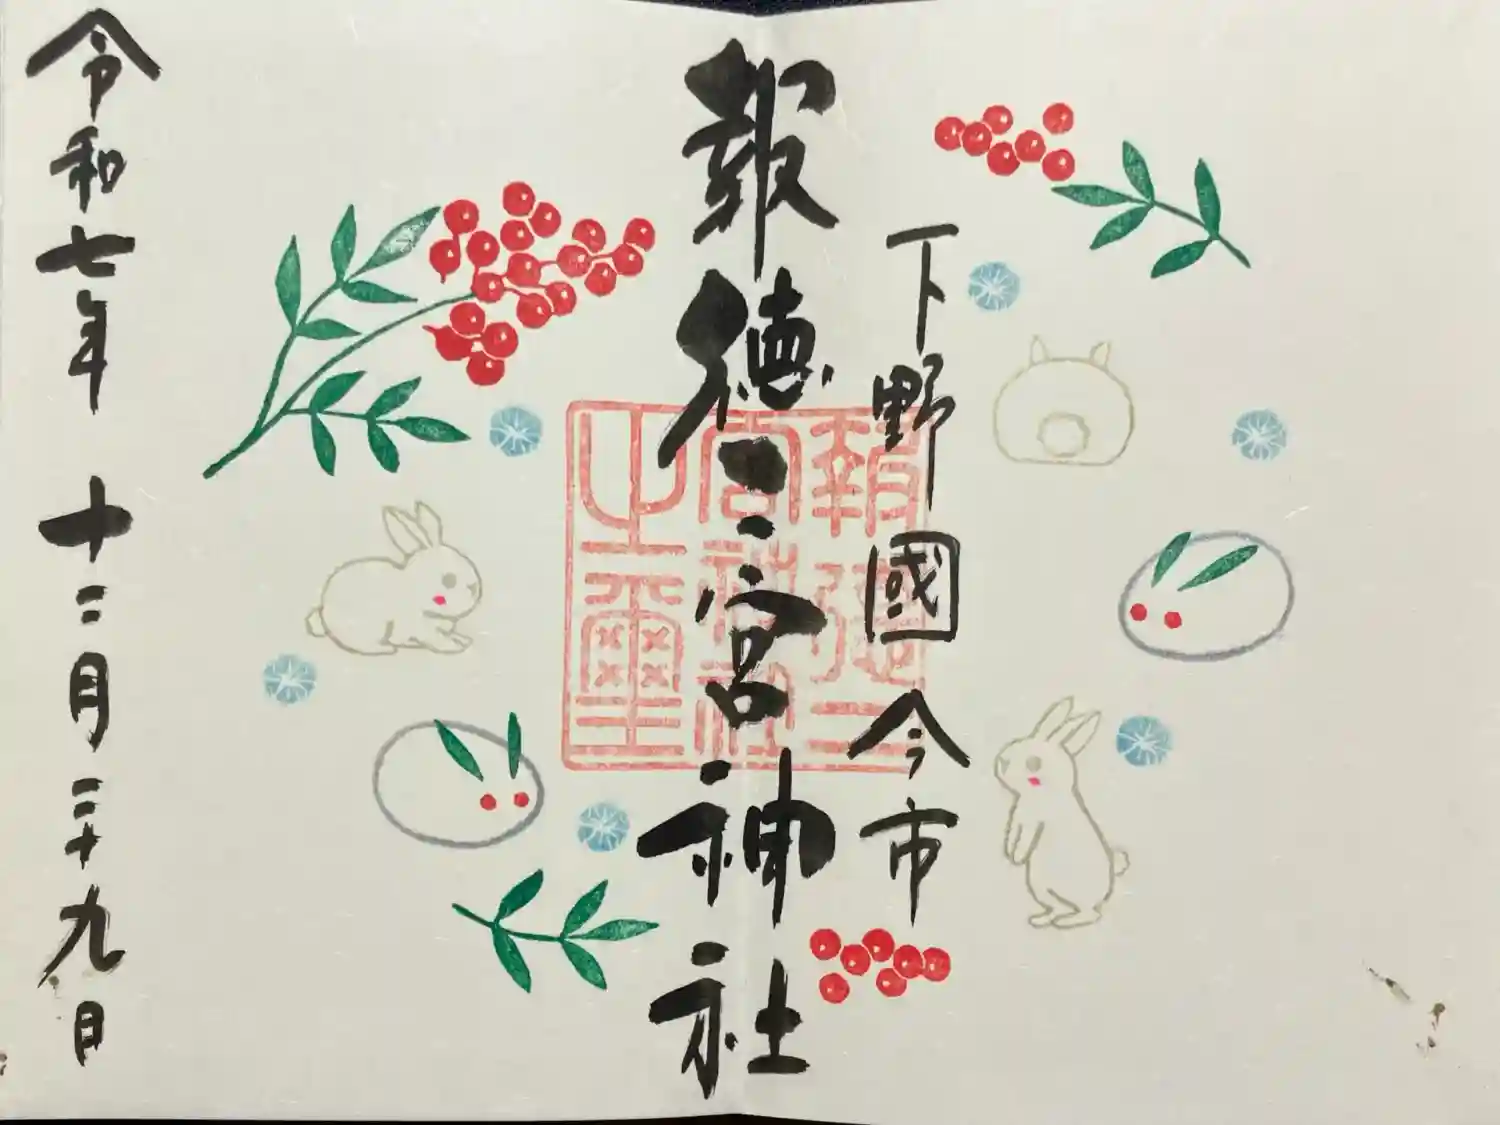 下野國今市
報徳二宮神社
報徳二
宮神社
之璽
令和七年 十二月二十九日